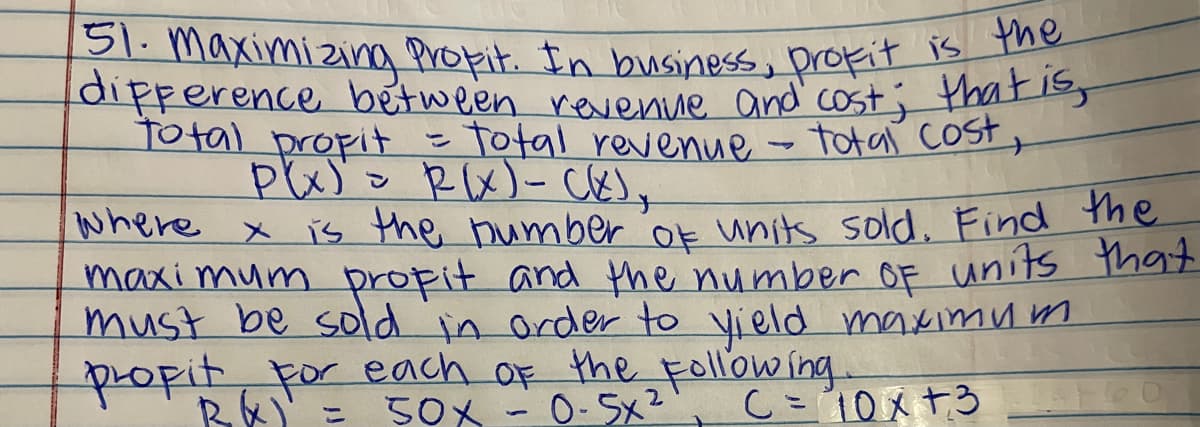 51. Maximizing Profit. In business, profit is the
difference between revenue and cost; that is,
Total profit = Total revenue - Total cost,
P(x) = R(x) - C(x),
where x is the number of units sold. Find the
maximum profit and the number of units that
must be sold in order to yield maximum
profit for each of the following.
R(x) = 50x - 0.5x², C = 10x + 3